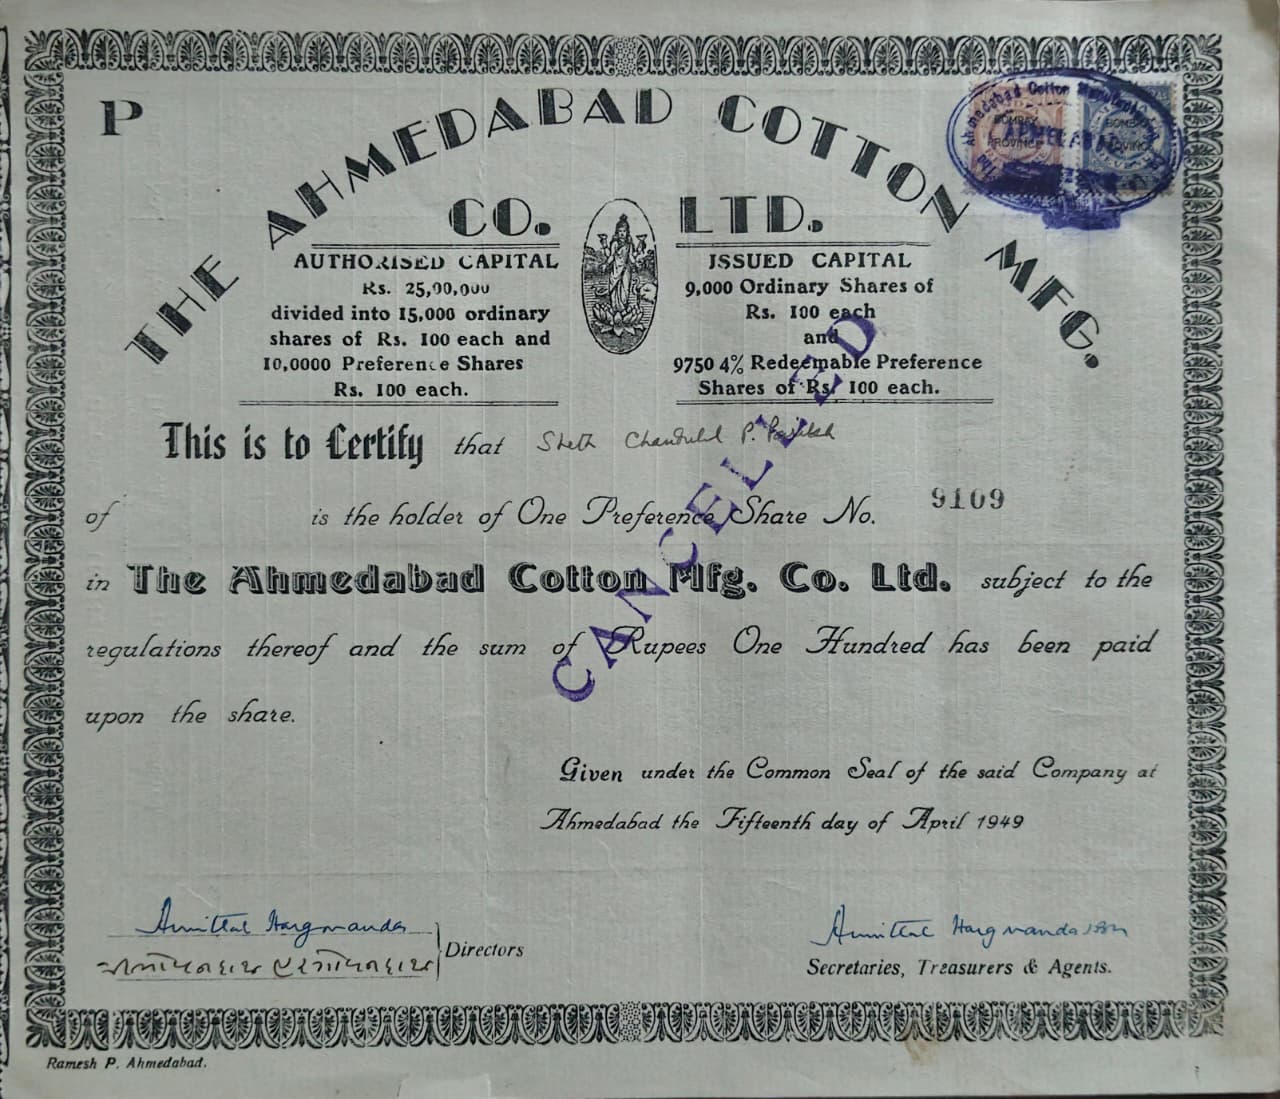 P
THE AHMEDABAD COTTON MFG.
CO. LTD.
AUTHORISED CAPITAL
Rs. 25,00,000
divided into 15,000 ordinary
shares of Rs. 100 each and
10,0000 Preference Shares
Rs. 100 each.
ISSUED CAPITAL
9,000 Ordinary Shares of
Rs. 100 each
and
9750 4% Redeemable Preference
Shares of Rs. 100 each.
Ahmedabad Cotton
AHMEDABAD
BOMBAY PROVINCE
BOMBAY PROVINCE
This is to Certify that Sheth Chandulal P. Parikh
of is the holder of One Preference Share No. 9109
in The Ahmedabad Cotton Mfg. Co. Ltd. subject to the
regulations thereof and the sum of Rupees One Hundred has been paid
upon the share.
CANCELLED
Given under the Common Seal of the said Company at
Ahmedabad the Fifteenth day of April 1949
Amritlal Hargovandas
Directors
Amritlal Hargovandas
Secretaries, Treasurers & Agents.
Ramesh P. Ahmedabad.